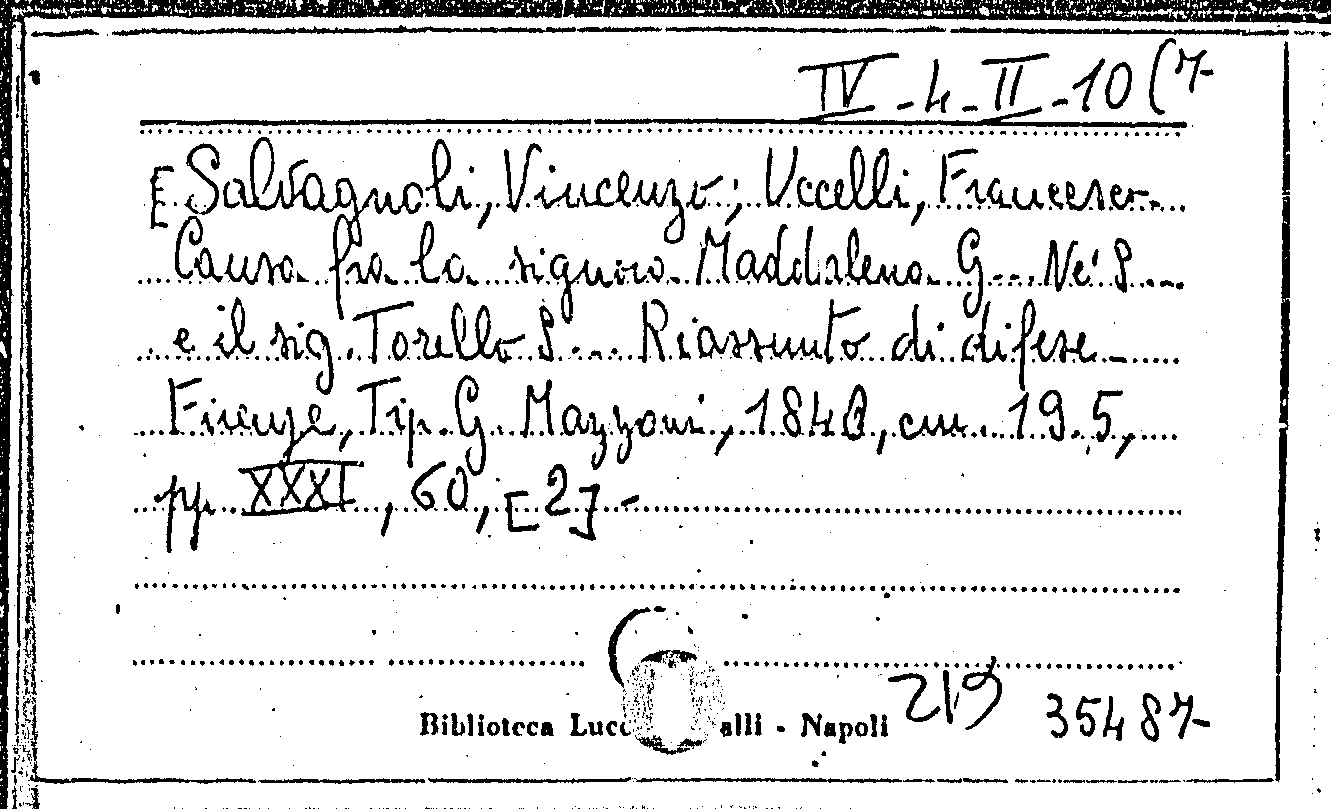 IV-4-II-10(7
[Salvagnoli, Vincenzo; Uccelli, Francesco.
Causa fra la signora Maddalena G... Ne' S...
e il sig. Torello S... Riassunto di difese.
Firenze, Tip. G. Mazzoni, 1840, cm. 19.5,
pp. XXXI, 60, [2]-
219 35487
Biblioteca Lucc alli - Napoli